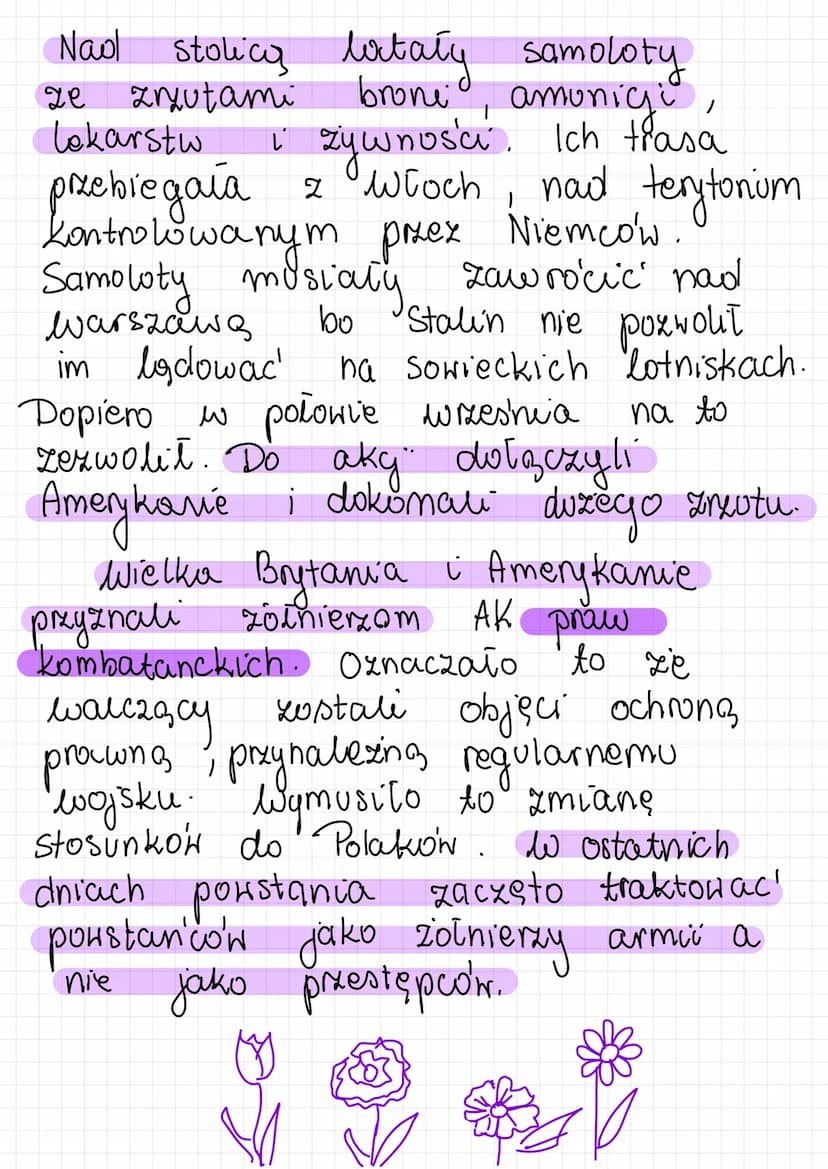 Nad stolicą latały samoloty
ze zrzutami broni, amunicji,
lekarstw i żywności. Ich trasa
przebiegała z Włoch, nad terytorium
kontrolowanym przez Niemców.
Samoloty musiały zawrócić nad
Warszawą bo Stalin nie pozwolił
im lądować na sowieckich lotniskach.
Dopiero w połowie września na to
zezwolił. Do akcji dołączyli
Amerykanie i dokonali dużego zrzutu.
Wielka Brytania i Amerykanie
przyznali żołnierzom AK praw
kombatanckich. Oznaczało to że
walczący zostali objęci ochroną
prawną, przynależną regularnemu
wojsku. Wymusiło to zmianę
stosunków do Polaków. W ostatnich
dniach powstania zaczęto traktować
powstańców jako żołnierzy armii a
nie jako przestępców.